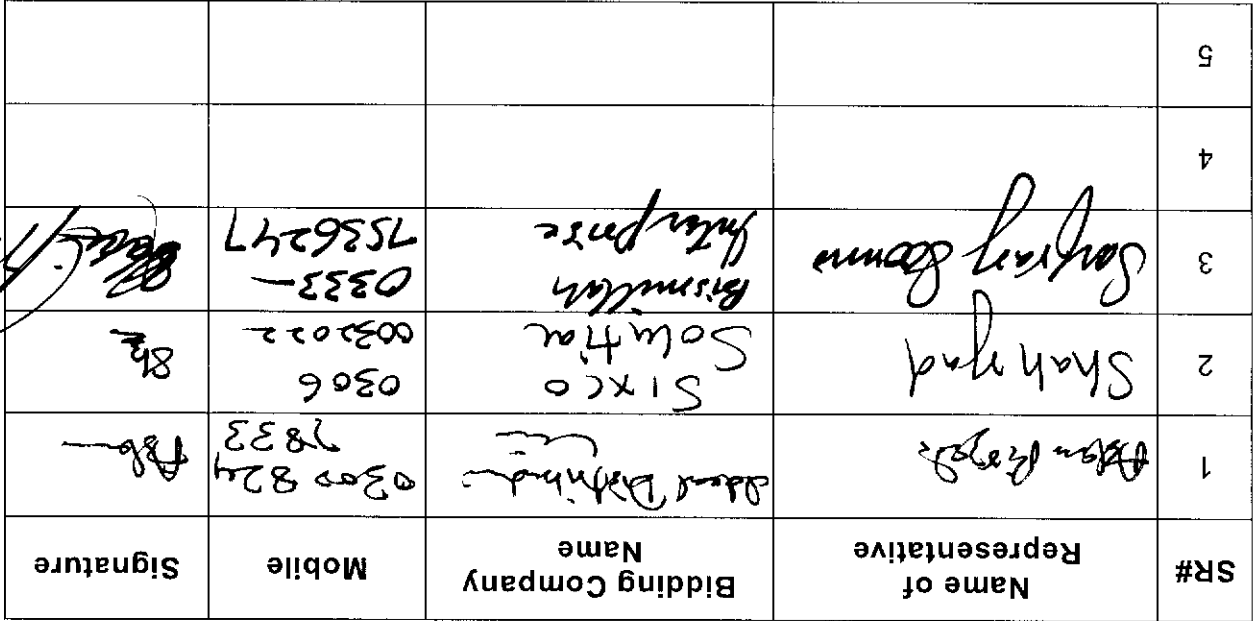 SR#
Name of
Representative
Bidding Company
Name
Mobile
Signature
1
Ideal
0300 824
7833
2
Shahzad
Sixco
Solution
0306
0032022
3
Sarfraz Soomro
Bismillah
Interprise
0333-
7536247
4
5